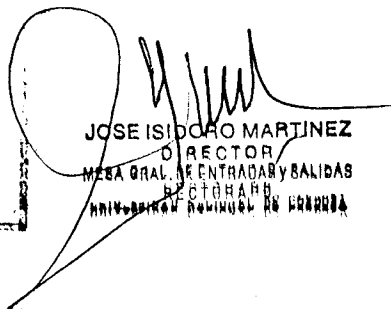 JOSE ISIDORO MARTINEZ
DIRECTOR
MESA GRAL. DE ENTRADAS y SALIDAS
RECTORADO
UNIVERSIDAD NACIONAL DE CORDOBA